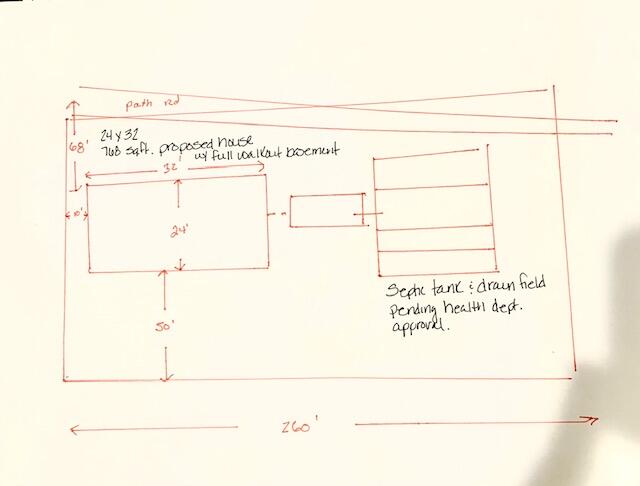 path rd
24 x 32
768 sqft. proposed house
w/ full walkout basement
68'
32'
10'
24'
50'
Septic tank & drain field
pending health dept.
approval.
260'